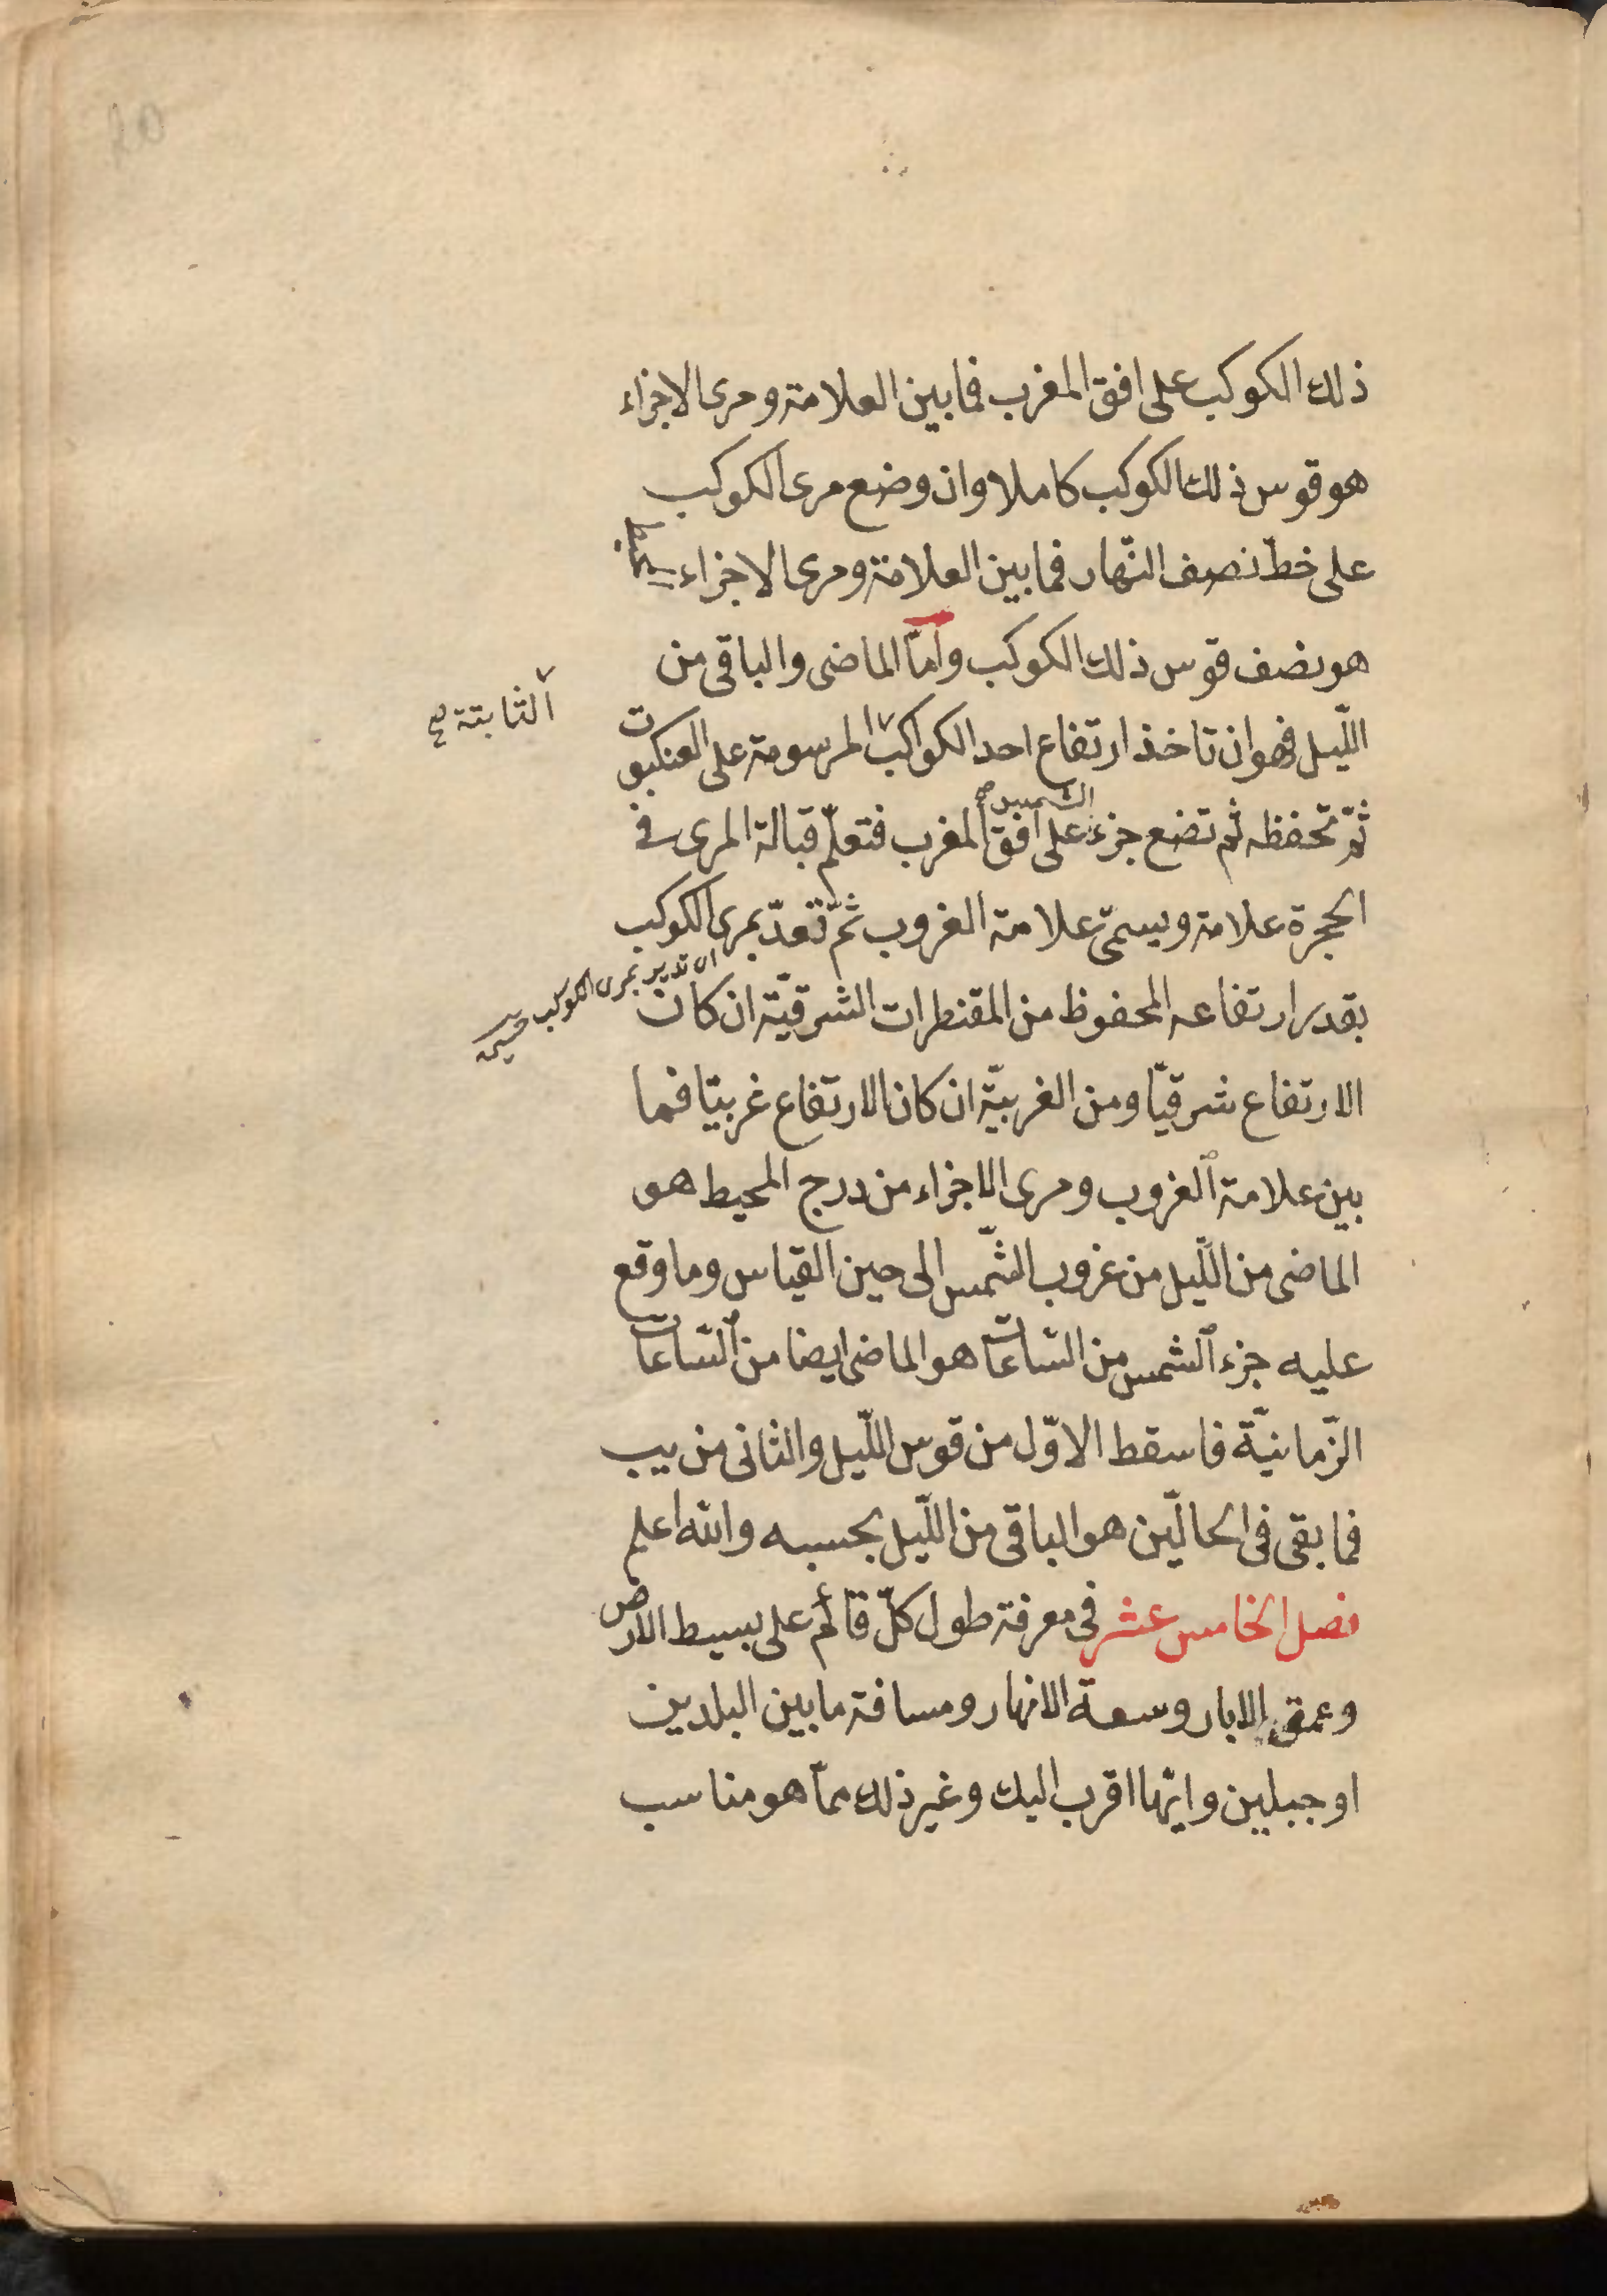 ذلك الكوكب على افق المغرب فما بين العلامة ومرى الاجزاء
هو قوس ذلك الكوكب كاملا وان وضع مرى الكوكب
على خطّ نصف النّهار فما بين العلامة ومرى الاجزاء
هو نصف قوس ذلك الكوكب وامّا الماضى والباقى من
اللّيل فهو ان تاخذ ارتفاع احد الكواكب المرسومة على العنكبوت
الثابتة صح
ثمّ تحفظه ثم تضع جزء الشمس على افق المغرب فتعلّم قبالة المرى فى
الحجرة علامة ويسمّى علامة الغروب ثمّ تعدّ بمرى الكوكب
ان تدير بمرى الكوكب
بقدر ارتفاعه المحفوظ من المقنطرات الشرقيّة ان كان
الارتفاع شرقيّا ومن الغربيّة ان كان الارتفاع غربيّا فما
بين علامة الغروب ومرى الاجزاء من درج المحيط هو
الماضى من اللّيل من غروب الشّمس الى حين القياس وما وقع
عليه جزء الشمس من السّاعات هو الماضى ايضا من السّاعات
الزّمانيّة فاسقط الاوّل من قوس اللّيل والثانى من يب
فما بقى فى الحالّين هو الباقى من اللّيل بحسبه والله اعلم
فصل الخامس عشر فى معرفة طول كلّ قائم على بسيط الارض
وعمق الابار وسعة الانهار ومسافة ما بين البلدين
او جبلين وايّها اقرب اليك وغير ذلك ممّا هو مناسب